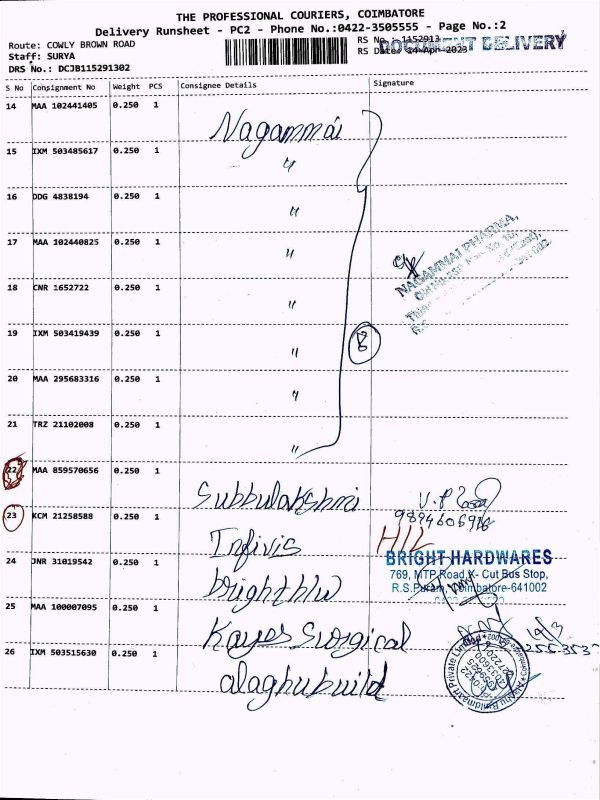 THE PROFESSIONAL COURIERS, COIMBATORE
Delivery Runsheet - PC2 - Phone No.:0422-3505555 - Page No.:2
Route: COWLY BROWN ROAD
RS No : 1152913
Staff: SURYA
RS Date: 14-Apr-2023
DOCUMENT DELIVERY
DRS No.: DCJB115291302
S No Consignment No Weight PCS Consignee Details Signature
14 MAA 102441405 0.250 1 Nagammai
15 IXM 503485617 0.250 1 "
16 DDG 4838194 0.250 1 "
17 MAA 102440825 0.250 1 "
NAGAMMAI PHARMA,
18 CNR 1652722 0.250 1 "
19 IXM 503419439 0.250 1 "
8
20 MAA 295683316 0.250 1 "
21 TRZ 21102008 0.250 1 "
22 MAA 859570656 0.250 1 Subbulakshmi
23 KCM 21258588 0.250 1 Infivis
H/L
BRIGHT HARDWARES
769, MTP Road, K- Cut Bus Stop,
R.S.Puram, Coimbatore-641002
24 JNR 31019542 0.250 1 brighthw
25 MAA 100007095 0.250 1 Kayes Surgical
26 IXM 503515630 0.250 1 alaghubuild